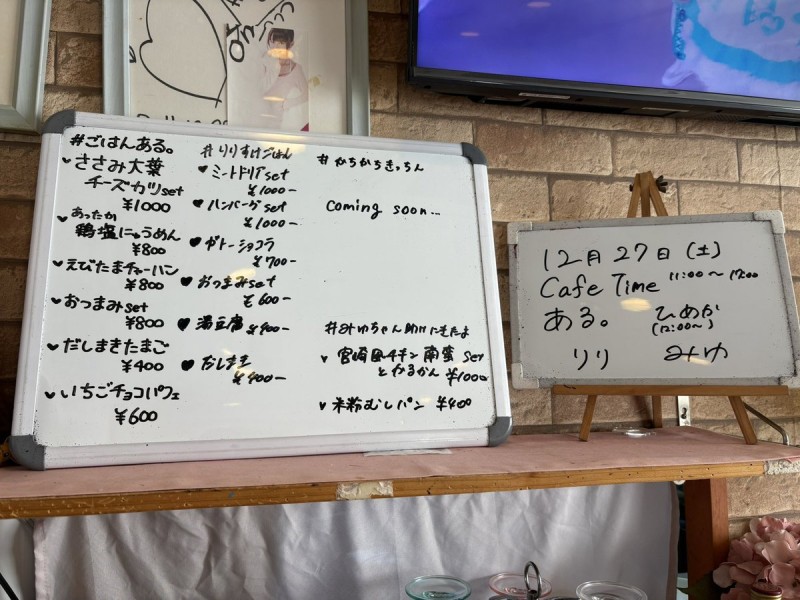 #ごはんある。
ささみ大葉
チーズカツset
¥1000
あったか
鶏塩にゅうめん
¥800
えびたまチャーハン
¥800
おつまみset
¥800
だしまきたまご
¥400
いちごチョコパフェ
¥600
#りりすけごはん
ミートドリアset
¥1000-
ハンバーグset
¥1000-
ガトーショコラ
¥700-
おつまみset
¥600-
湯豆腐 ¥400-
だしまき
¥400-
#かちかちきっちん
coming soon...
#みゆちゃん助けにきたよ
宮崎風チキン南蛮 set
とかるかん ¥1000
米粉むしパン ¥400
12月27日(土)
Cafe Time 11:00〜17:00
ある。 ひめか
(12:00〜)
りり みゆ